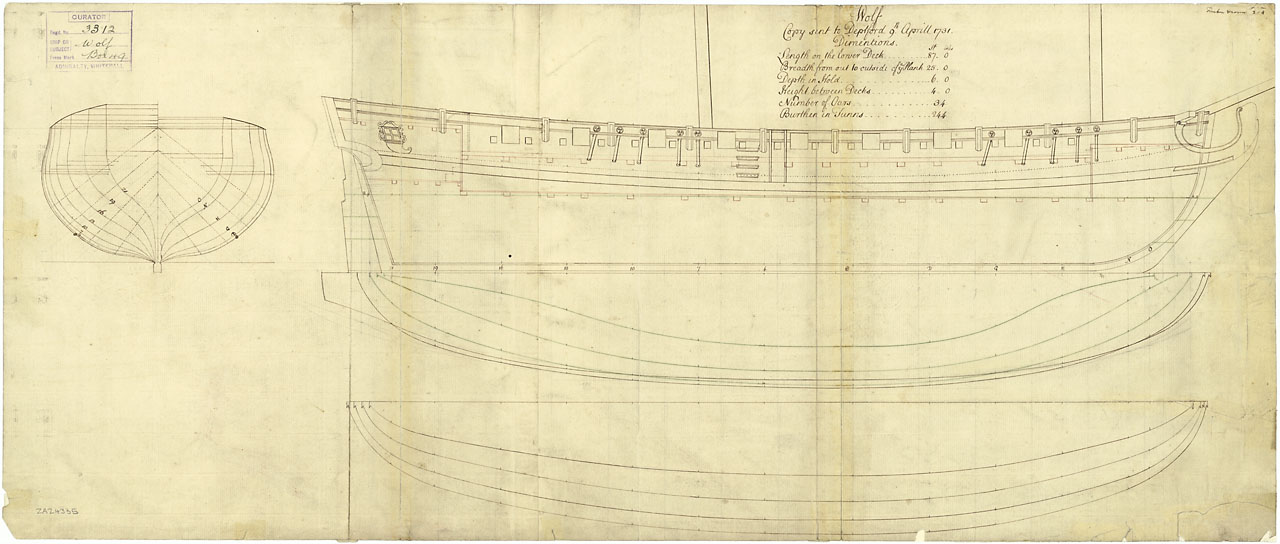 CURATOR
Regd. No. 3312
SHIP OR SUBJECT Wolf
Press Mark Box 49
ADMIRALTY, WHITEHALL
Wolf
Copy sent to Deptford 9th Aprill 1731.
Dimentions.
Length on the lower Deck 87. 0
Breadth from out to outside of ye Plank 25. 0
Depth in Hold 6. 0
Height between Decks 4. 0
Number of Oars 34
Burthen in Tunns 244
ZAZ4335